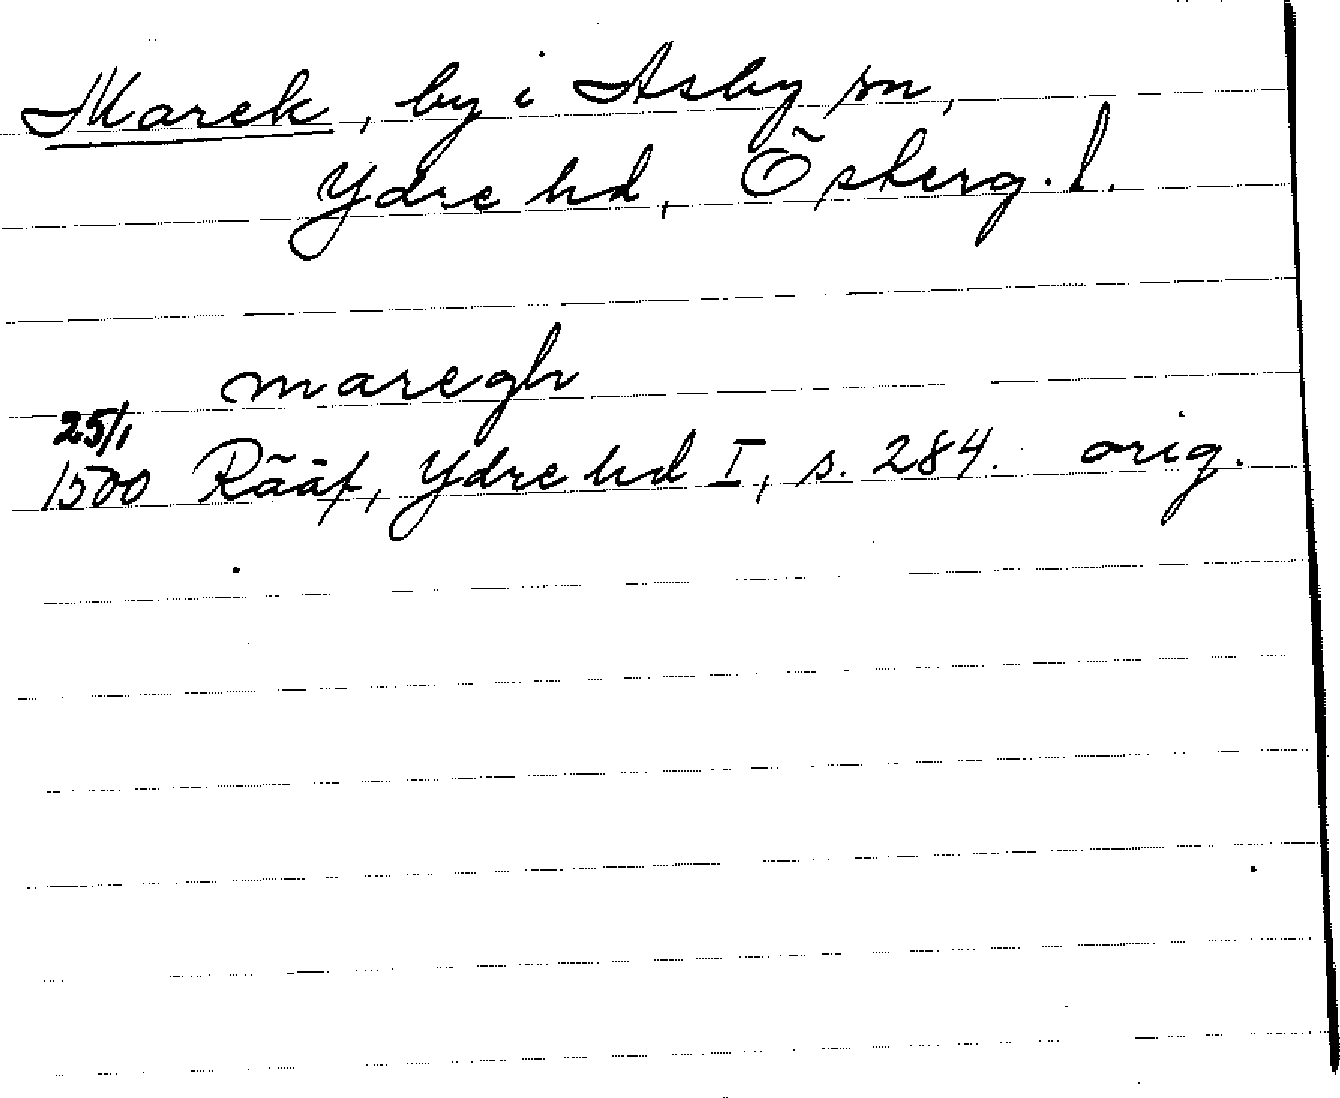 Marek, by i Asby sn,
Ydre hd, Österg. l.
maregh
25/1
1500 Rääf, Ydre hd I, s. 284. orig.